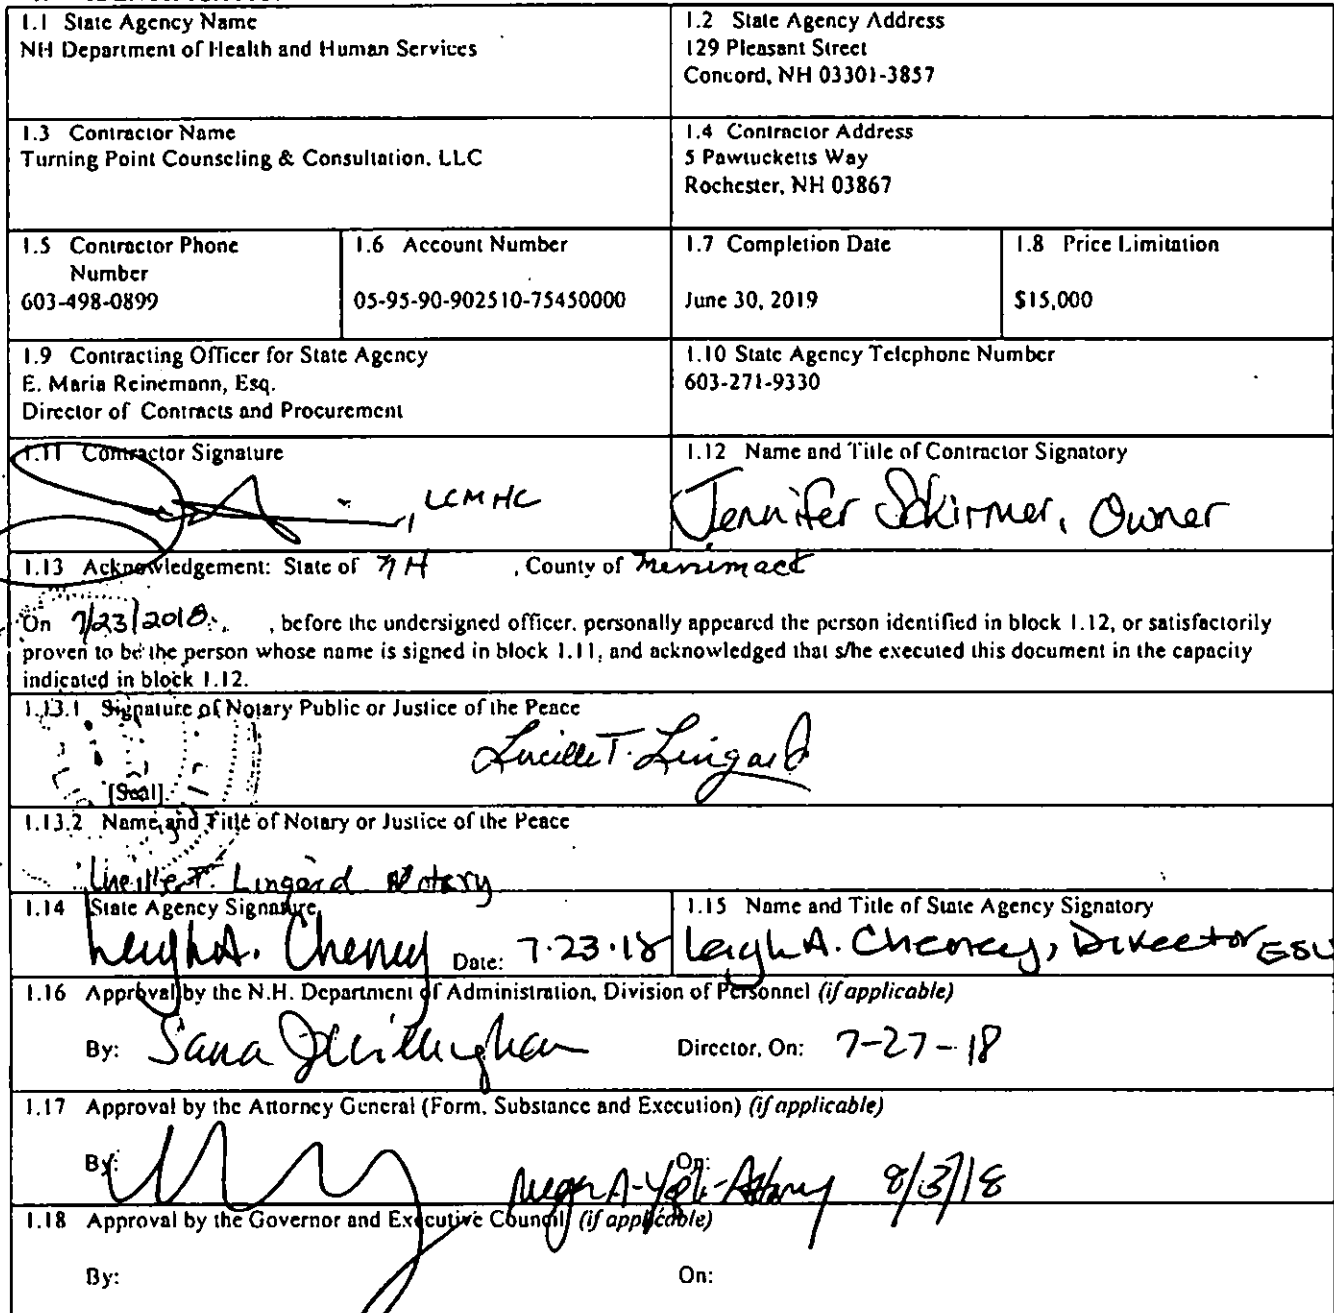 1.1 State Agency Name
NH Department of Health and Human Services
1.2 State Agency Address
129 Pleasant Street
Concord, NH 03301-3857
1.3 Contractor Name
Turning Point Counseling & Consultation, LLC
1.4 Contractor Address
5 Pawtucketts Way
Rochester, NH 03867
1.5 Contractor Phone
Number
603-498-0899
1.6 Account Number
05-95-90-902510-75450000
1.7 Completion Date
June 30, 2019
1.8 Price Limitation
$15,000
1.9 Contracting Officer for State Agency
E. Maria Reinemann, Esq.
Director of Contracts and Procurement
1.10 State Agency Telephone Number
603-271-9330
1.11 Contractor Signature
, LCMHC
1.12 Name and Title of Contractor Signatory
Jennifer Schirmer, Owner
1.13 Acknowledgement: State of NH , County of Merrimack
On 7/23/2018 , before the undersigned officer, personally appeared the person identified in block 1.12, or satisfactorily
proven to be the person whose name is signed in block 1.11, and acknowledged that s/he executed this document in the capacity
indicated in block 1.12.
1.13.1 Signature of Notary Public or Justice of the Peace
Lucille T. Lingard
[Seal]
1.13.2 Name and Title of Notary or Justice of the Peace
Lucille T. Lingard Notary
1.14 State Agency Signature
Leigh A. Cheney Date: 7.23.18
1.15 Name and Title of State Agency Signatory
Leigh A. Cheney, Director ESU
1.16 Approval by the N.H. Department of Administration, Division of Personnel (if applicable)
By: Sara J Willingham Director, On: 7-27-18
1.17 Approval by the Attorney General (Form, Substance and Execution) (if applicable)
By: On: 8/3/18
1.18 Approval by the Governor and Executive Council (if applicable)
By: On: